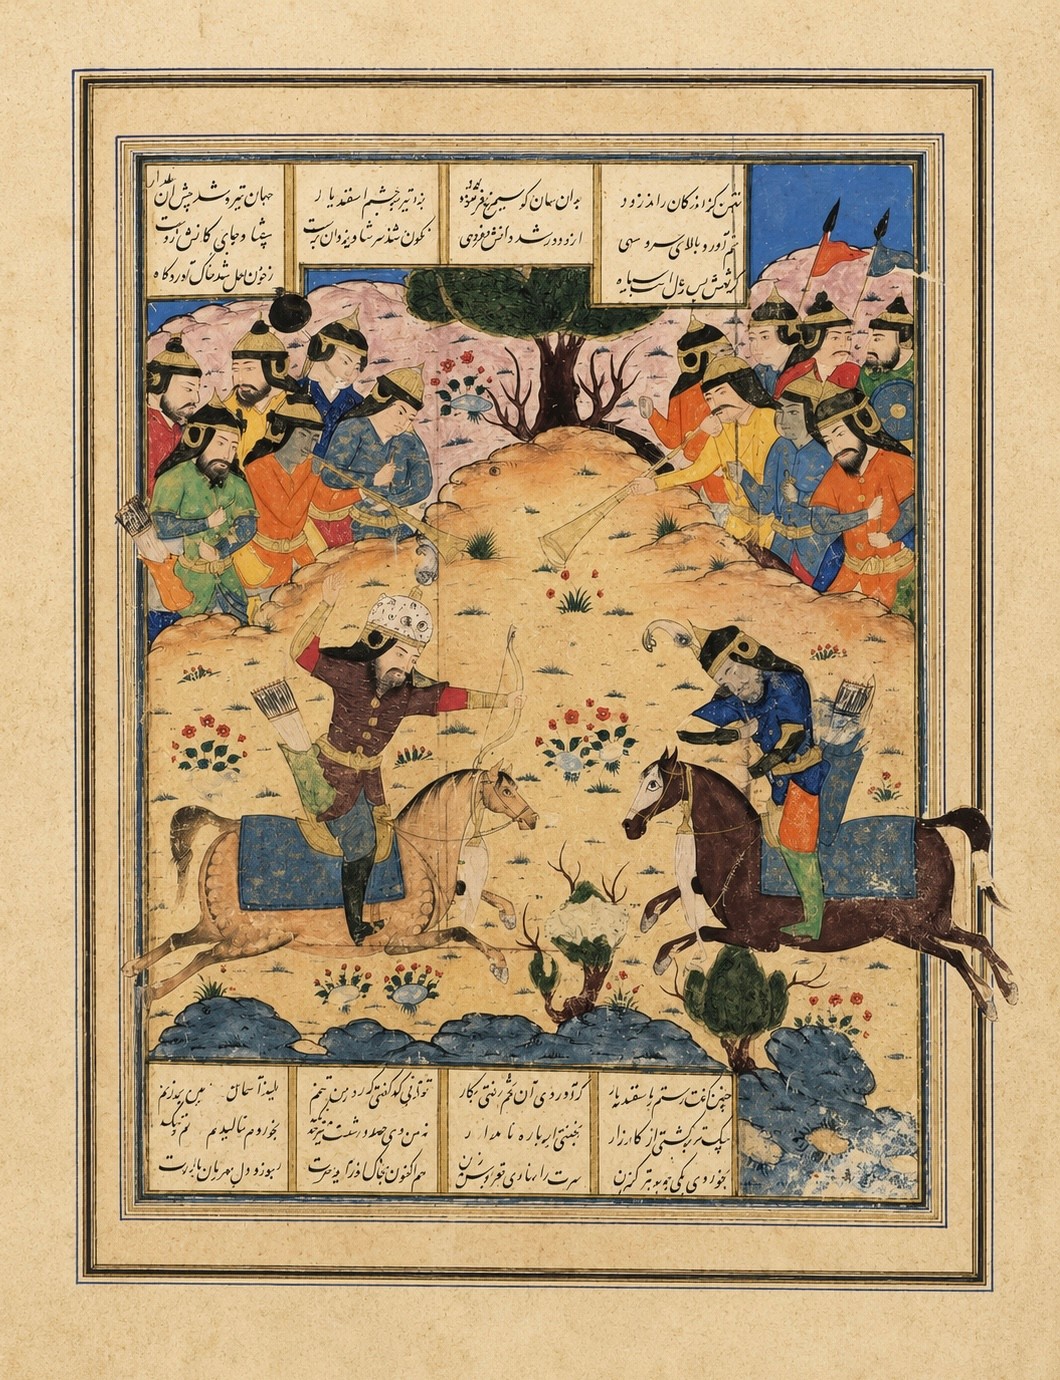 تهمتن کز اندر کمان راند زود بدان سان کو سیمرغ فرموده بود بزد تیر بر چشم اسفندیار جهان تیره شد پیش آن
خم آورد بالای سرو سهی ازو دور شد دانش و فرهی نگون شد سر شاه یزدان پرست بیفتاد چاچی کمانش ز دست
گرفتش بش و یال اسپ سیاه ز خون لعل شد خاک آوردگاه
چنین گفت رستم باسفندیار که آوردی آن تخم زفتی ببار تو آنی که گفتی که رویین تنم بلند آسمان بر زمین برزنم
بیک تیر برگشتی از کارزار بخفتی بران باره نامدار نه من دی صد و شصت تیر خدنگ بخوردم ننالیدم
بخوردی یکی چوبه تیر گزین سرت را نهادی بقربوس زین هم اکنون بخاک اندر آید سرت بسوزد دل مهربان مادرت